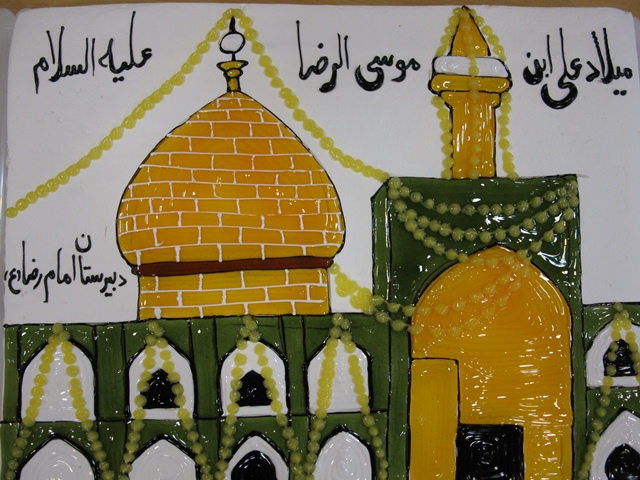 میلاد علی ابن موسی الرضا علیه السلام
دبیرستان امام رضا (ع)